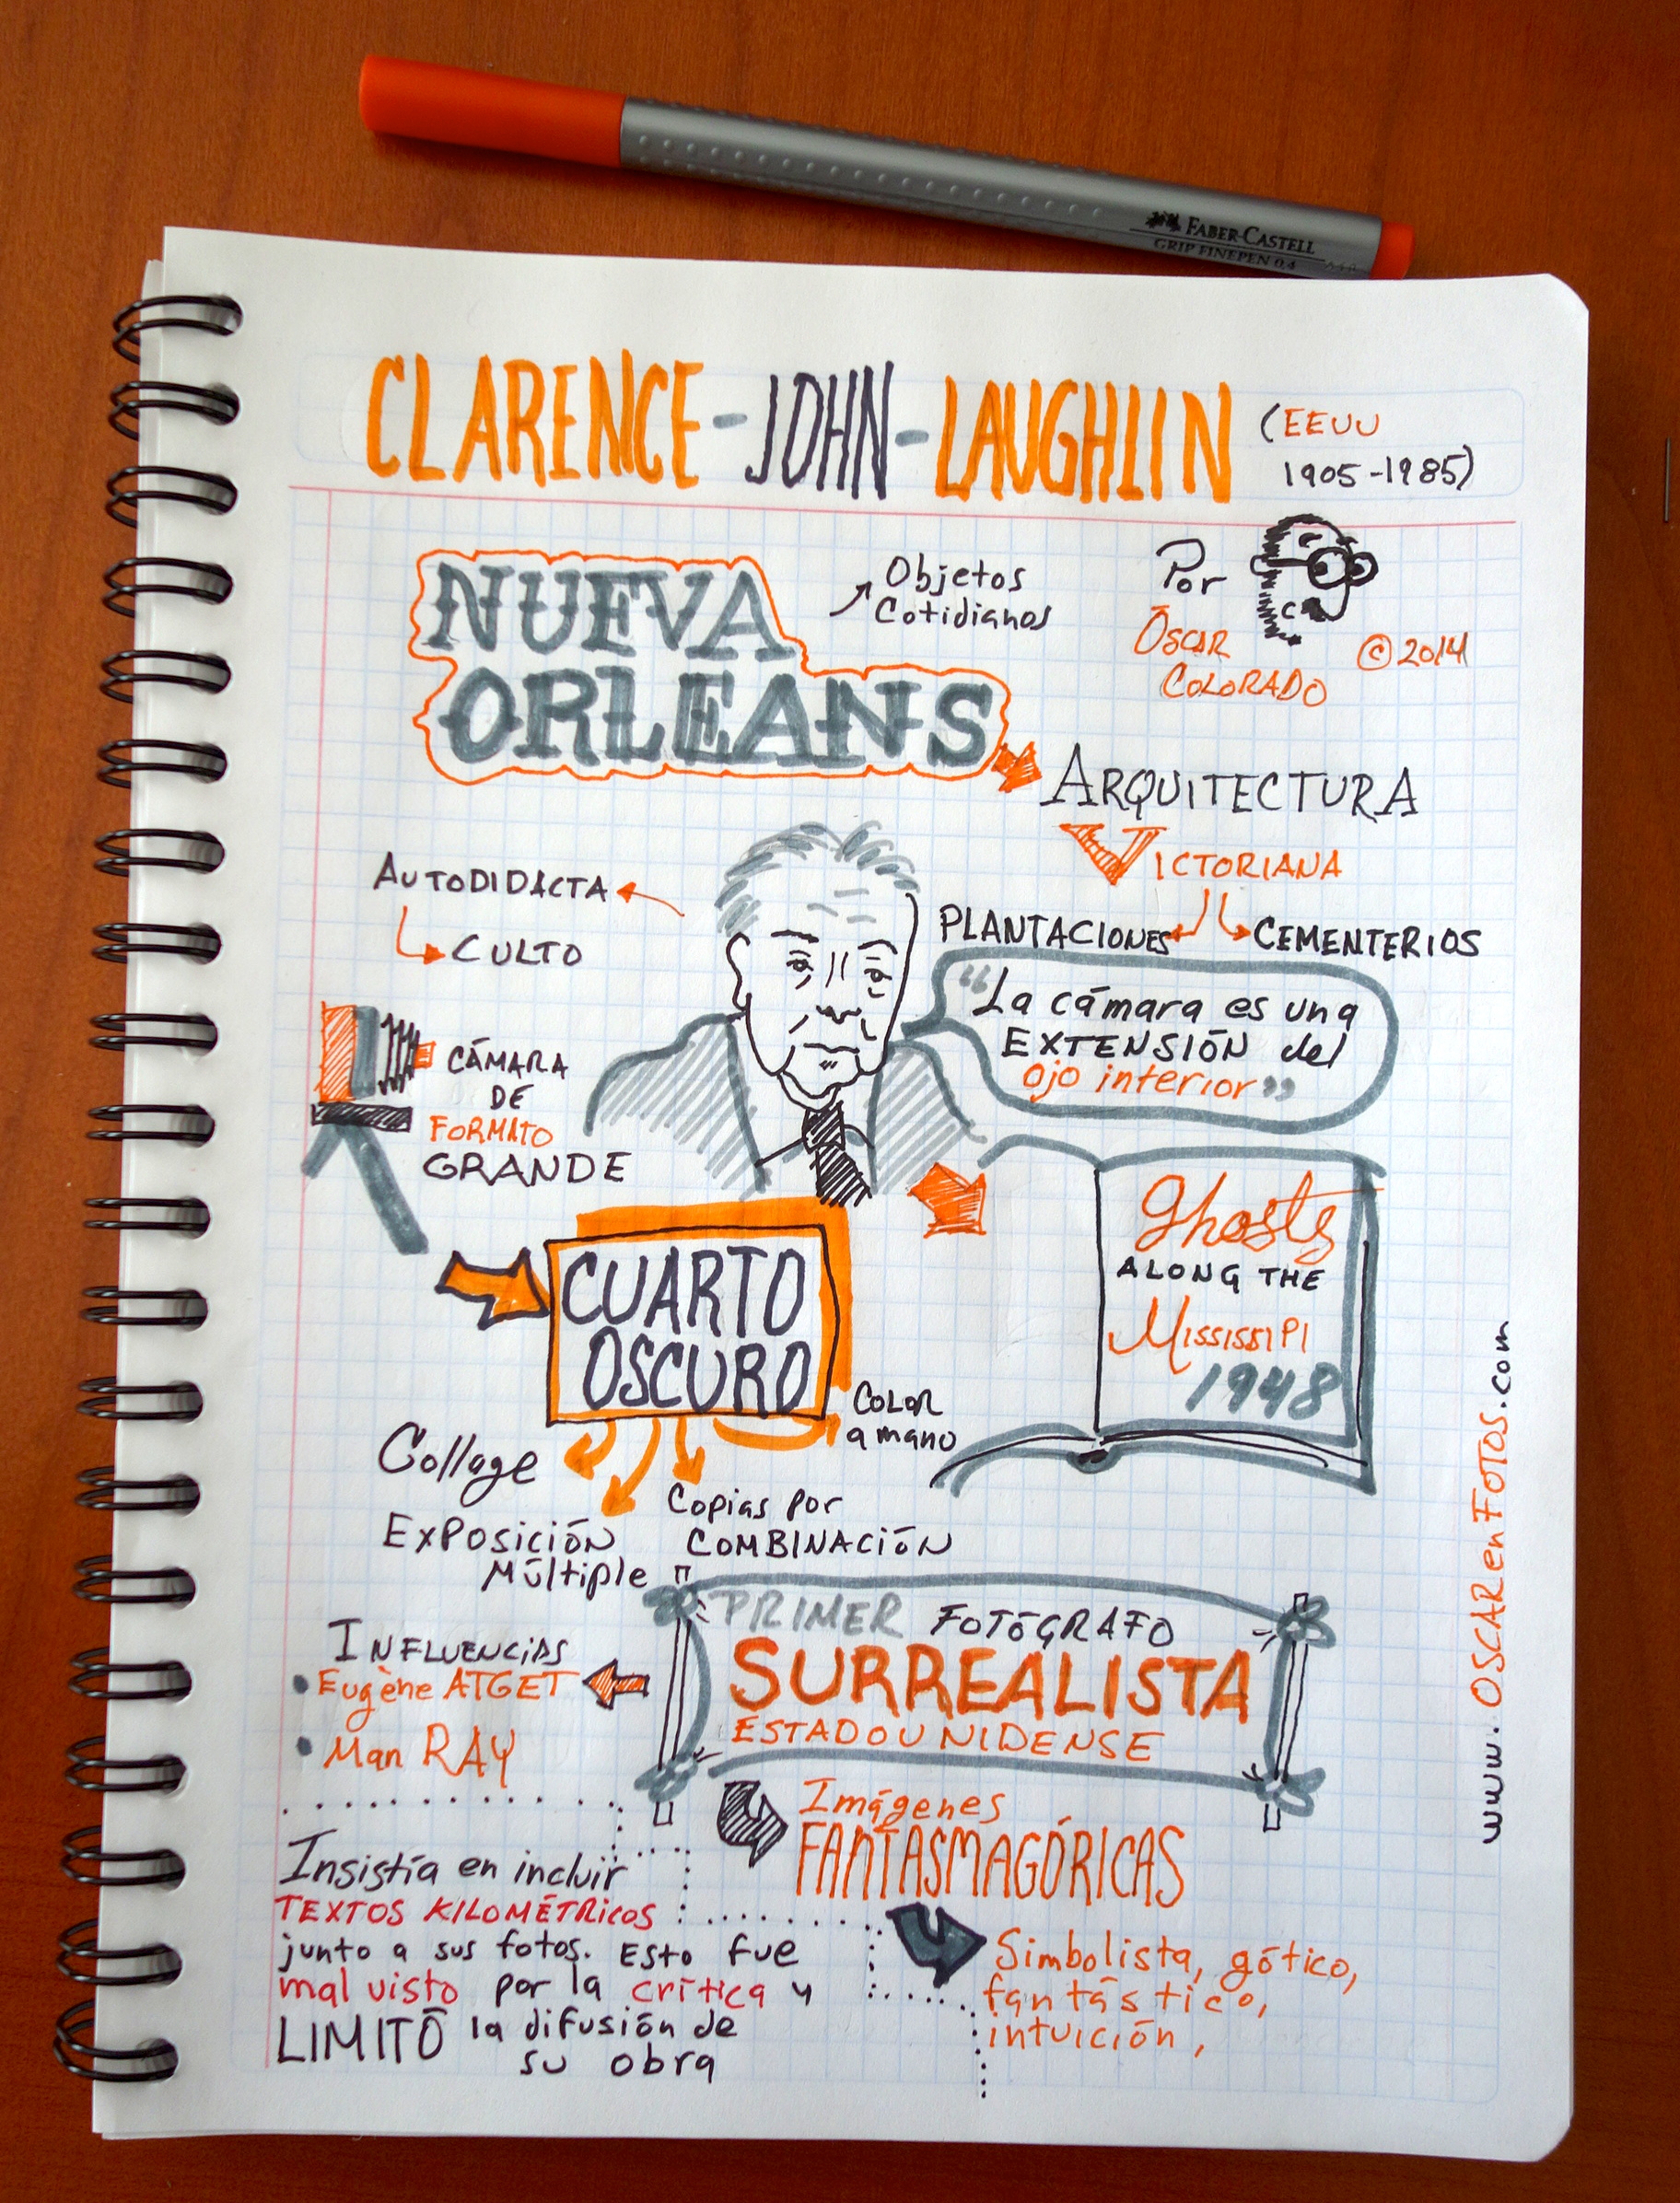 FABER-CASTELL
GRIP FINEPEN 0.4
CLARENCE-JOHN-LAUGHLIN
(EEUU
1905-1985)
NUEVA
ORLEANS
Objetos
Cotidianos
Por
ÓSCAR
COLORADO
© 2014
ARQUITECTURA
VICTORIANA
PLANTACIONES
CEMENTERIOS
AUTODIDACTA
CULTO
"La cámara es una
EXTENSIÓN del
ojo interior"
CÁMARA
DE
FORMATO
GRANDE
Ghosts
ALONG THE
MISSISSIPI
1948
CUARTO
OSCURO
COLOR
a mano
Collage
EXPOSICIÓN
Múltiple
Copias por
COMBINACIÓN
PRIMER FOTÓGRAFO
SURREALISTA
ESTADOUNIDENSE
INFLUENCIAS
• Eugène ATGET
• Man RAY
Imágenes
FANTASMAGÓRICAS
Simbolista, gótico,
fantástico,
intuición,
Insistía en incluir
TEXTOS KILOMÉTRICOS
junto a sus fotos. Esto fue
mal visto por la crítica y
LIMITÓ la difusión de
su obra
www.OSCARenFOTOS.com